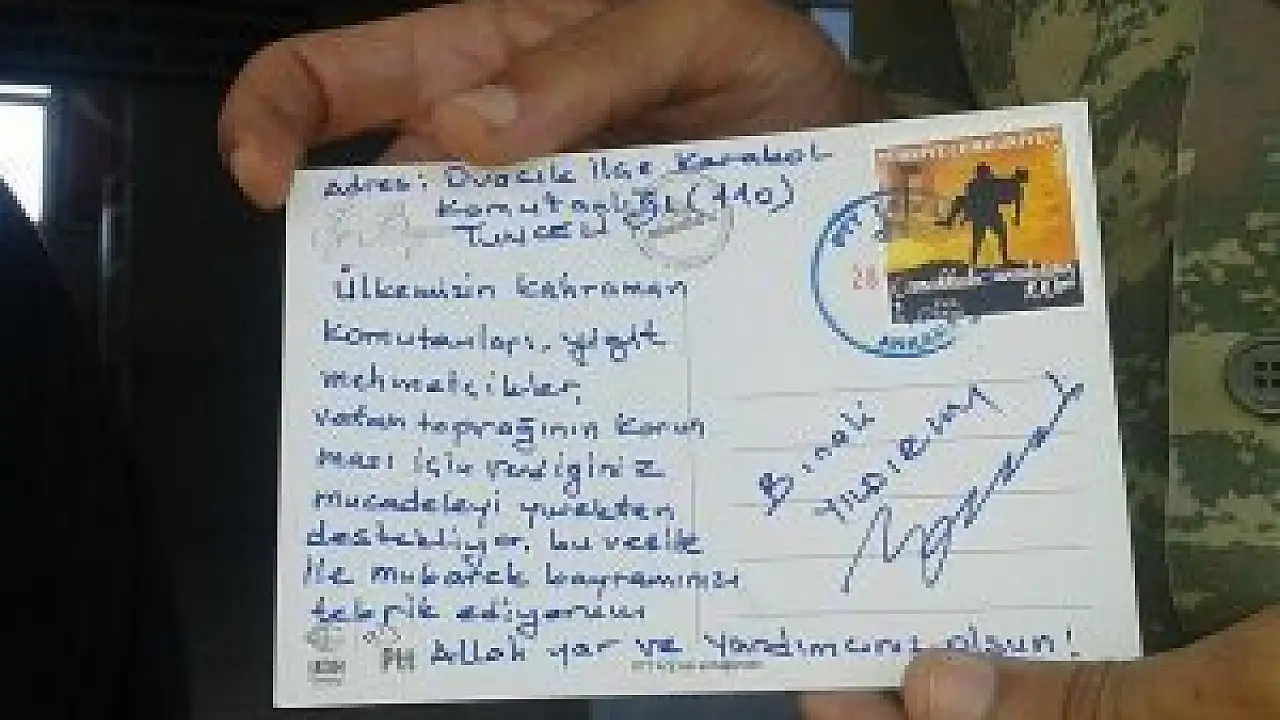 adres: Ovacık ilçe Karakol
Komutanlığı (110)
TUNCELİ
Ülkemizin kahraman
komutanları, yiğit
mehmetçikler,
vatan toprağının korun
ması için verdiğiniz
mücadeleyi yürekten
destekliyor, bu vesile
ile mübarek bayramınızı
tebrik ediyorum
Allah yar ve yardımcınız olsun!
Binali
YILDIRIM
ANKARA
PH